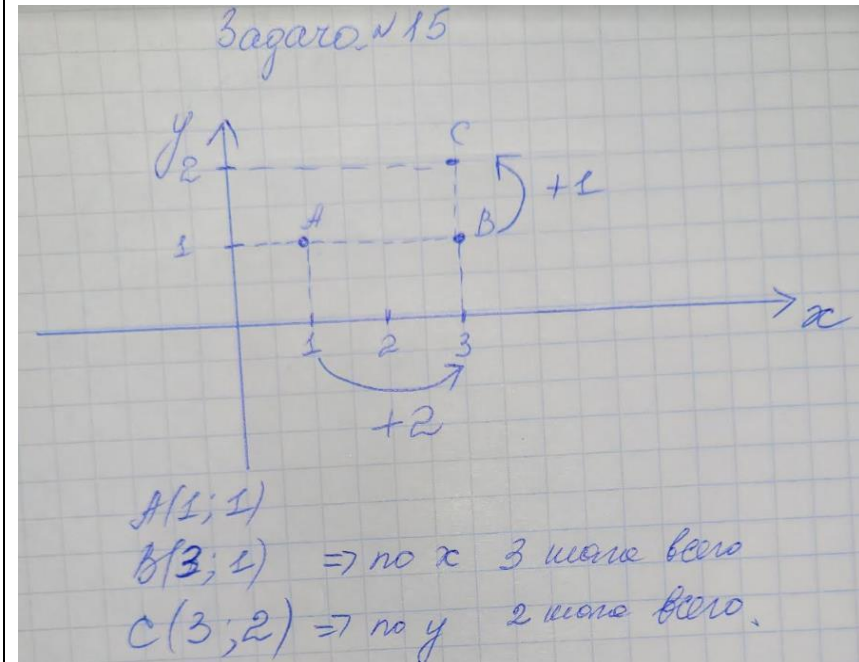 Задача №15
y
2
C
+1
A
B
1
x
1 2 3
+2
A(1; 1)
B(3; 1) => по x 3 шага всего
C(3; 2) => по y 2 шага всего.